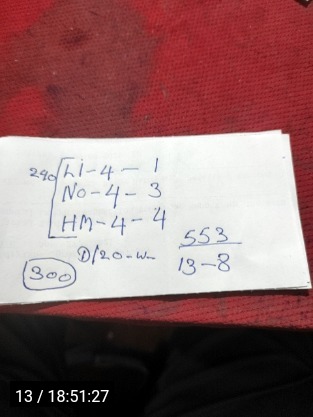 240 Li-4-1
No-4-3
HM-4-4
D/20-w-
553
13-8
300
13 / 18:51:27